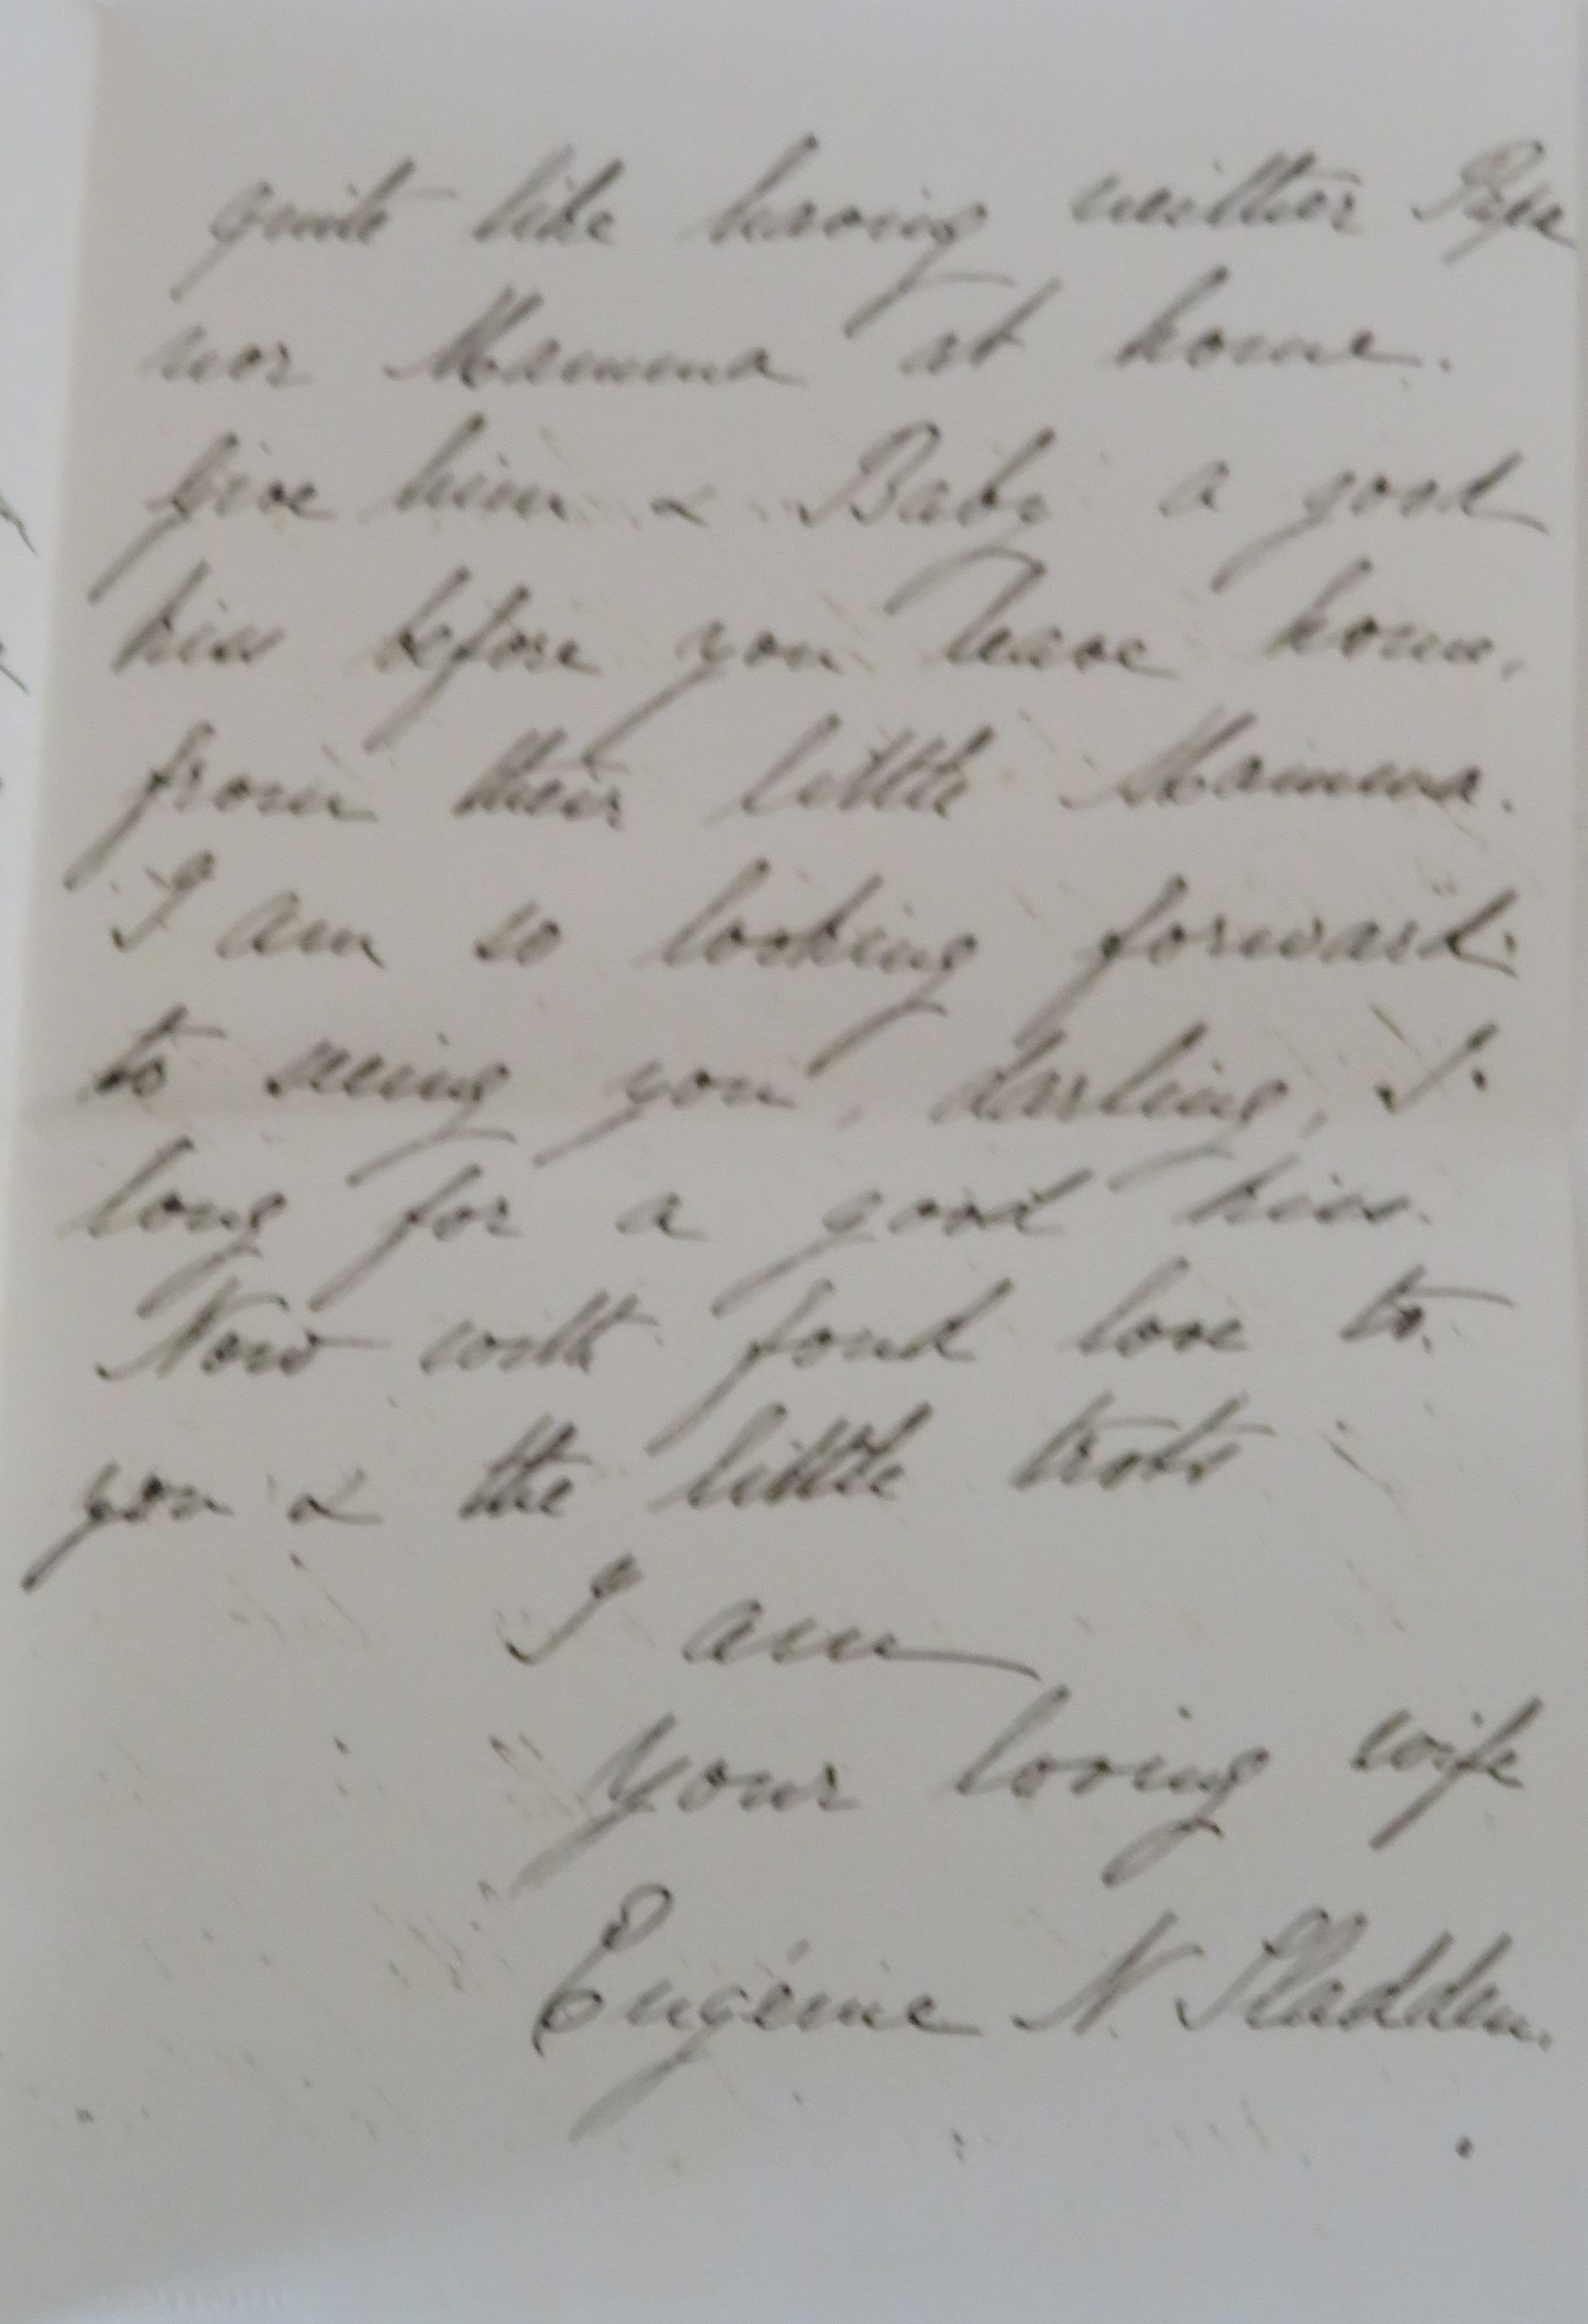 quite like having neither Papa
nor Mamma at home.
Give him & Baby a good
kiss before you leave home,
from their little Mamma.
I am so looking forward
to seeing you, darling, I
long for a good kiss.
Now with fond love to
you & the little trots
I am
Your loving wife
Eugénie N. Sladden.